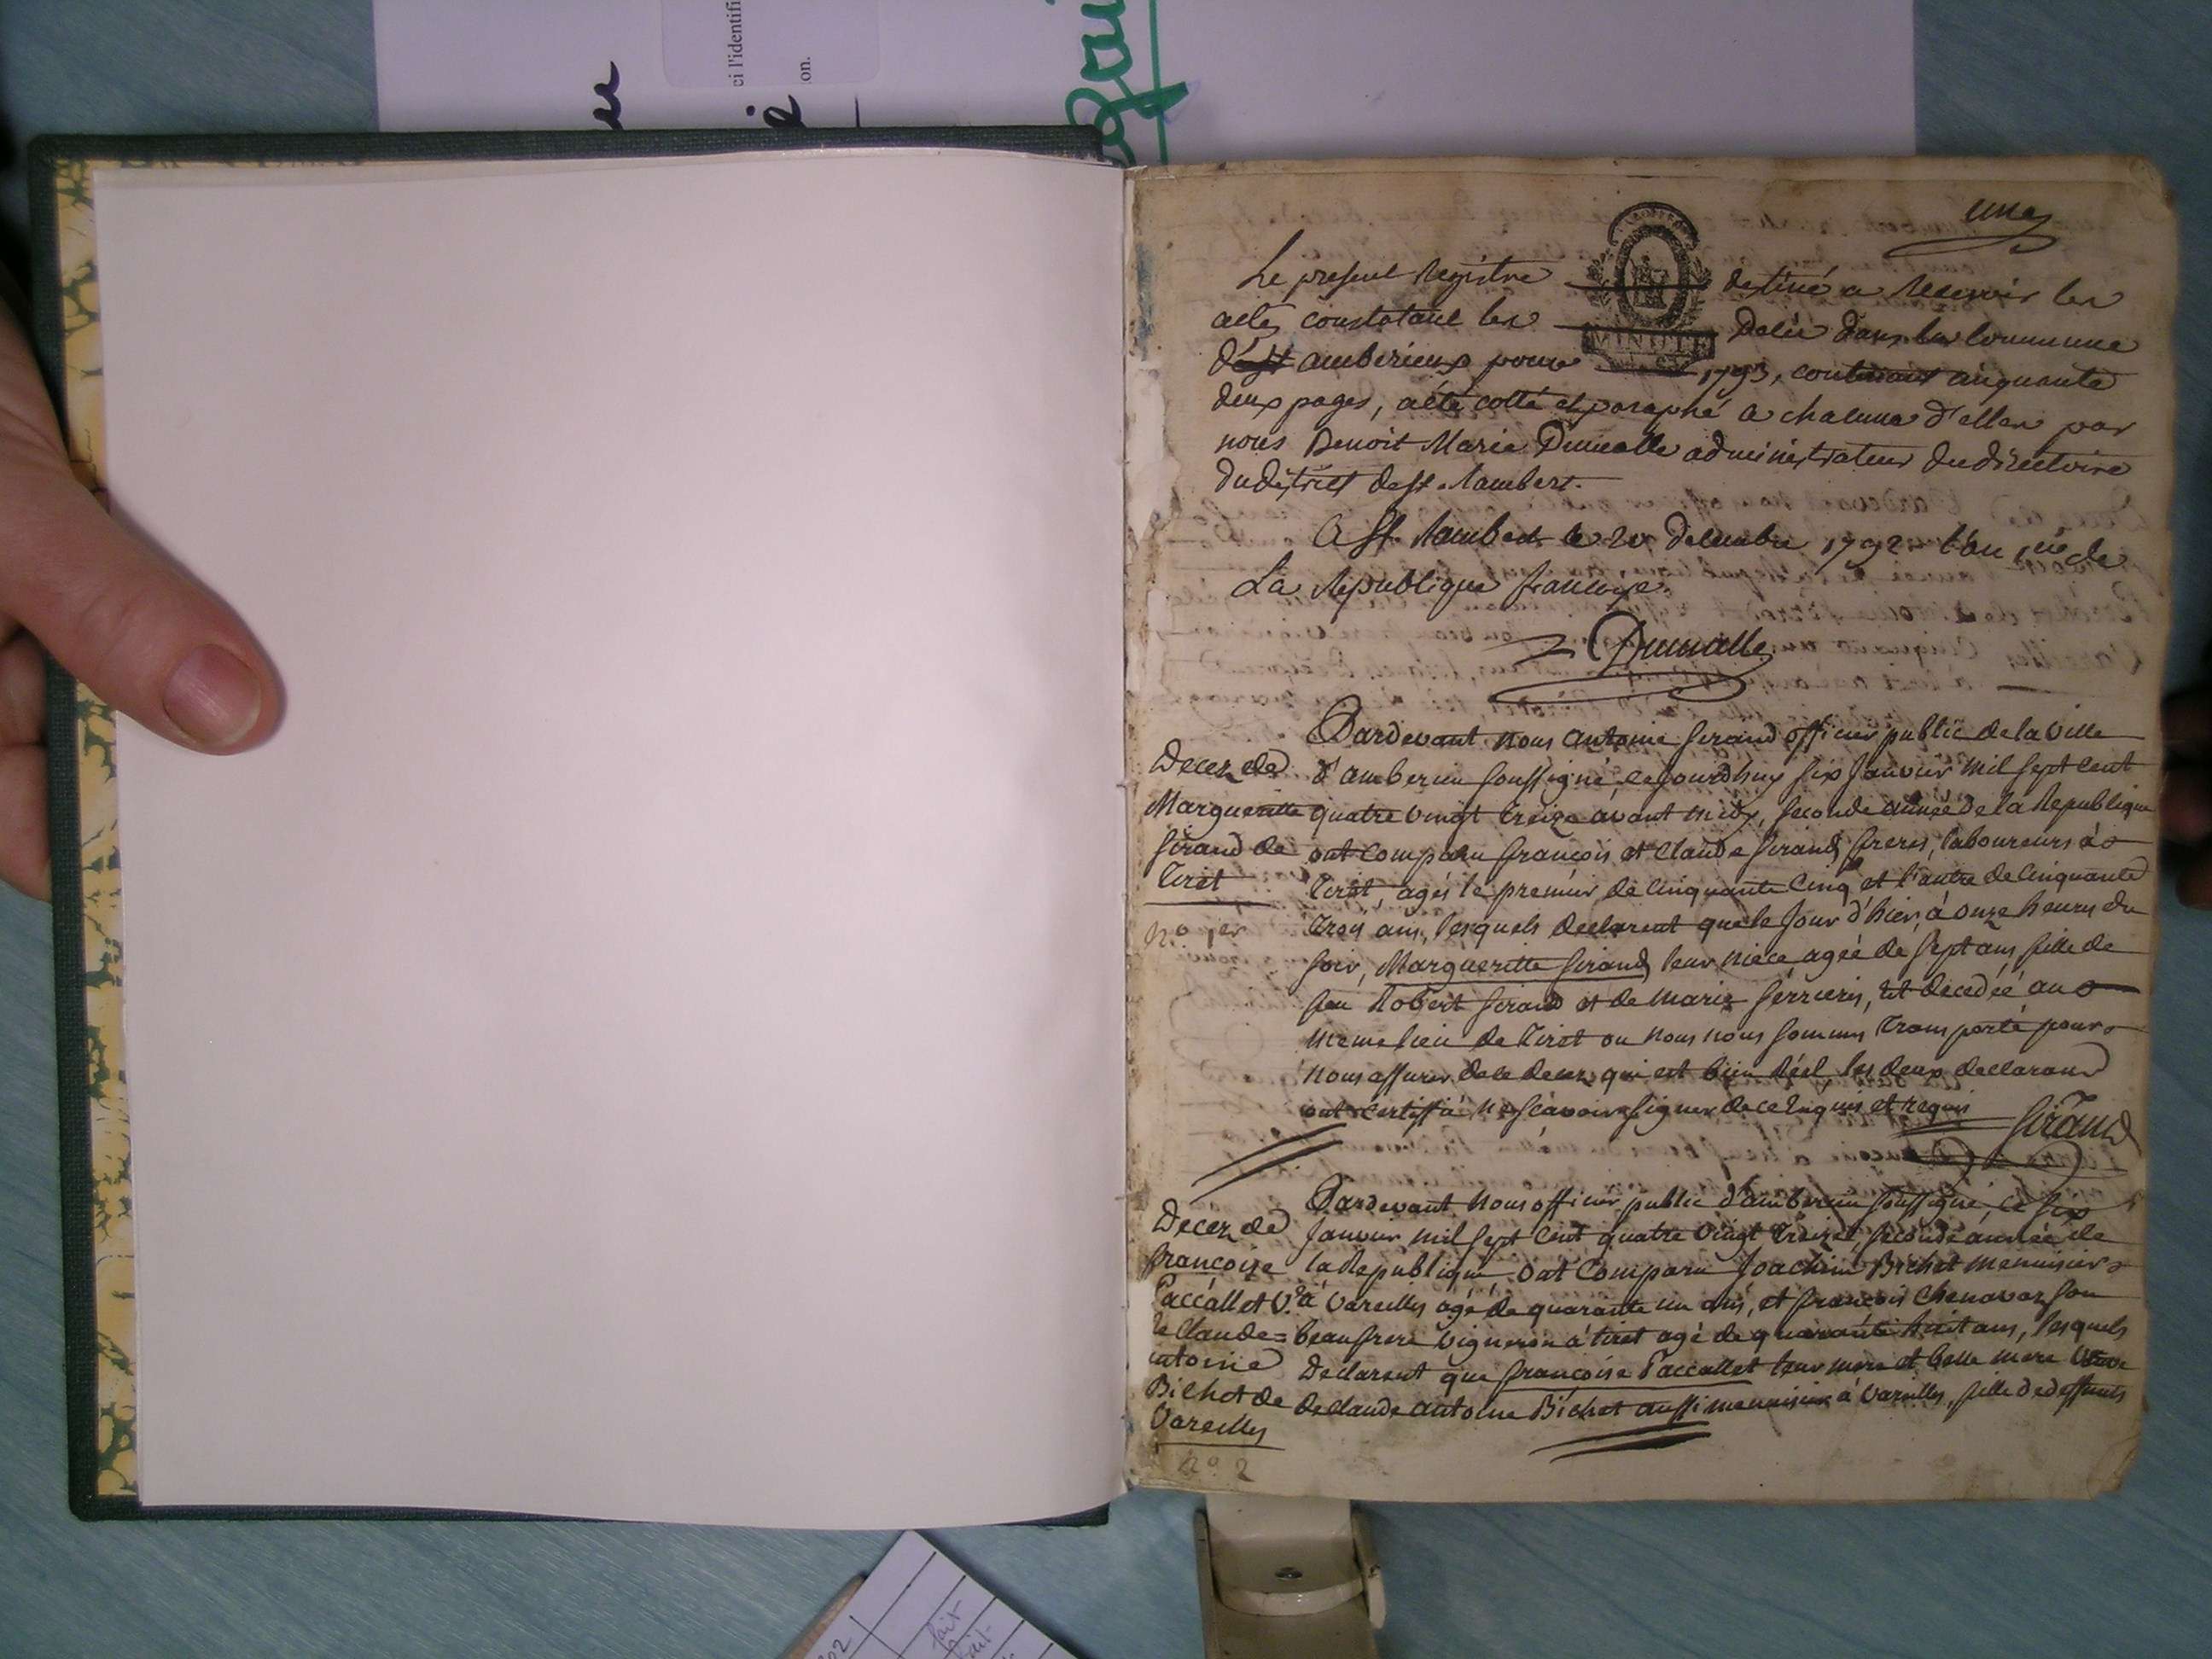 ci l'identifi
on.
une
Le present Registre destiné a recevoir les
actes constatant les Décès dans la commune
d'ambérieux pour 1793, contenant cinquante
deux pages, a été cotté et paraphé a chacune d'elles par
nous Benoit Marie administrateur du directoire
du district de st. Rambert.
A St. Rambert le 20 Décembre 1792 l'an 1er de
La République françoise.
Pardevant nous antoine Giraud officier public de la ville
d'amberieu soussigné, cejourdhuy six Janvier mil sept cent
quatre vingt treize avant midy, seconde année de la Republique
ont comparu françois et Claude Giraud freres, laboureurs à
Tiret, agés le premier de cinquante cinq et l'autre de cinquante
trois ans, lesquels declarent que le jour d'hier, à onze heures du
soir, Margueritte Giraud leur niéce, agée de sept ans, fille de
feu Robert Giraud et de marie ferrieres, est decedéé au
meme lieu de Tiret ou nous nous sommes transporté pour
nous assurer de ce decez, qui est bien réel, les deux declarans
ont certiffié ne sçavoir signer de ce enquis et requis
Giraud
Decez de
Margueritte
Giraud de
Tiret
n.o 1er
Pardevant nous officier public d'amberieu soussigné, ce six
Janvier mil sept cent quatre vingt treize, seconde année de
la Republique, ont comparu Joachim Bichat menuisier
à Vareilles agé de quarante un ans, et françois Chenavaz son
beaufrere vigneron à tiret agé de quarante huit ans, lesquels
Declarent que françoise Paccallet leur mere et belle mere veuve
de Claude antoine Bichat aussi menuisier à Vareilles, fille de deffunts
Decez de
françoise
Paccallet V.e
de Claude=
antoine
Bichat de
Vareilles
n.o 2